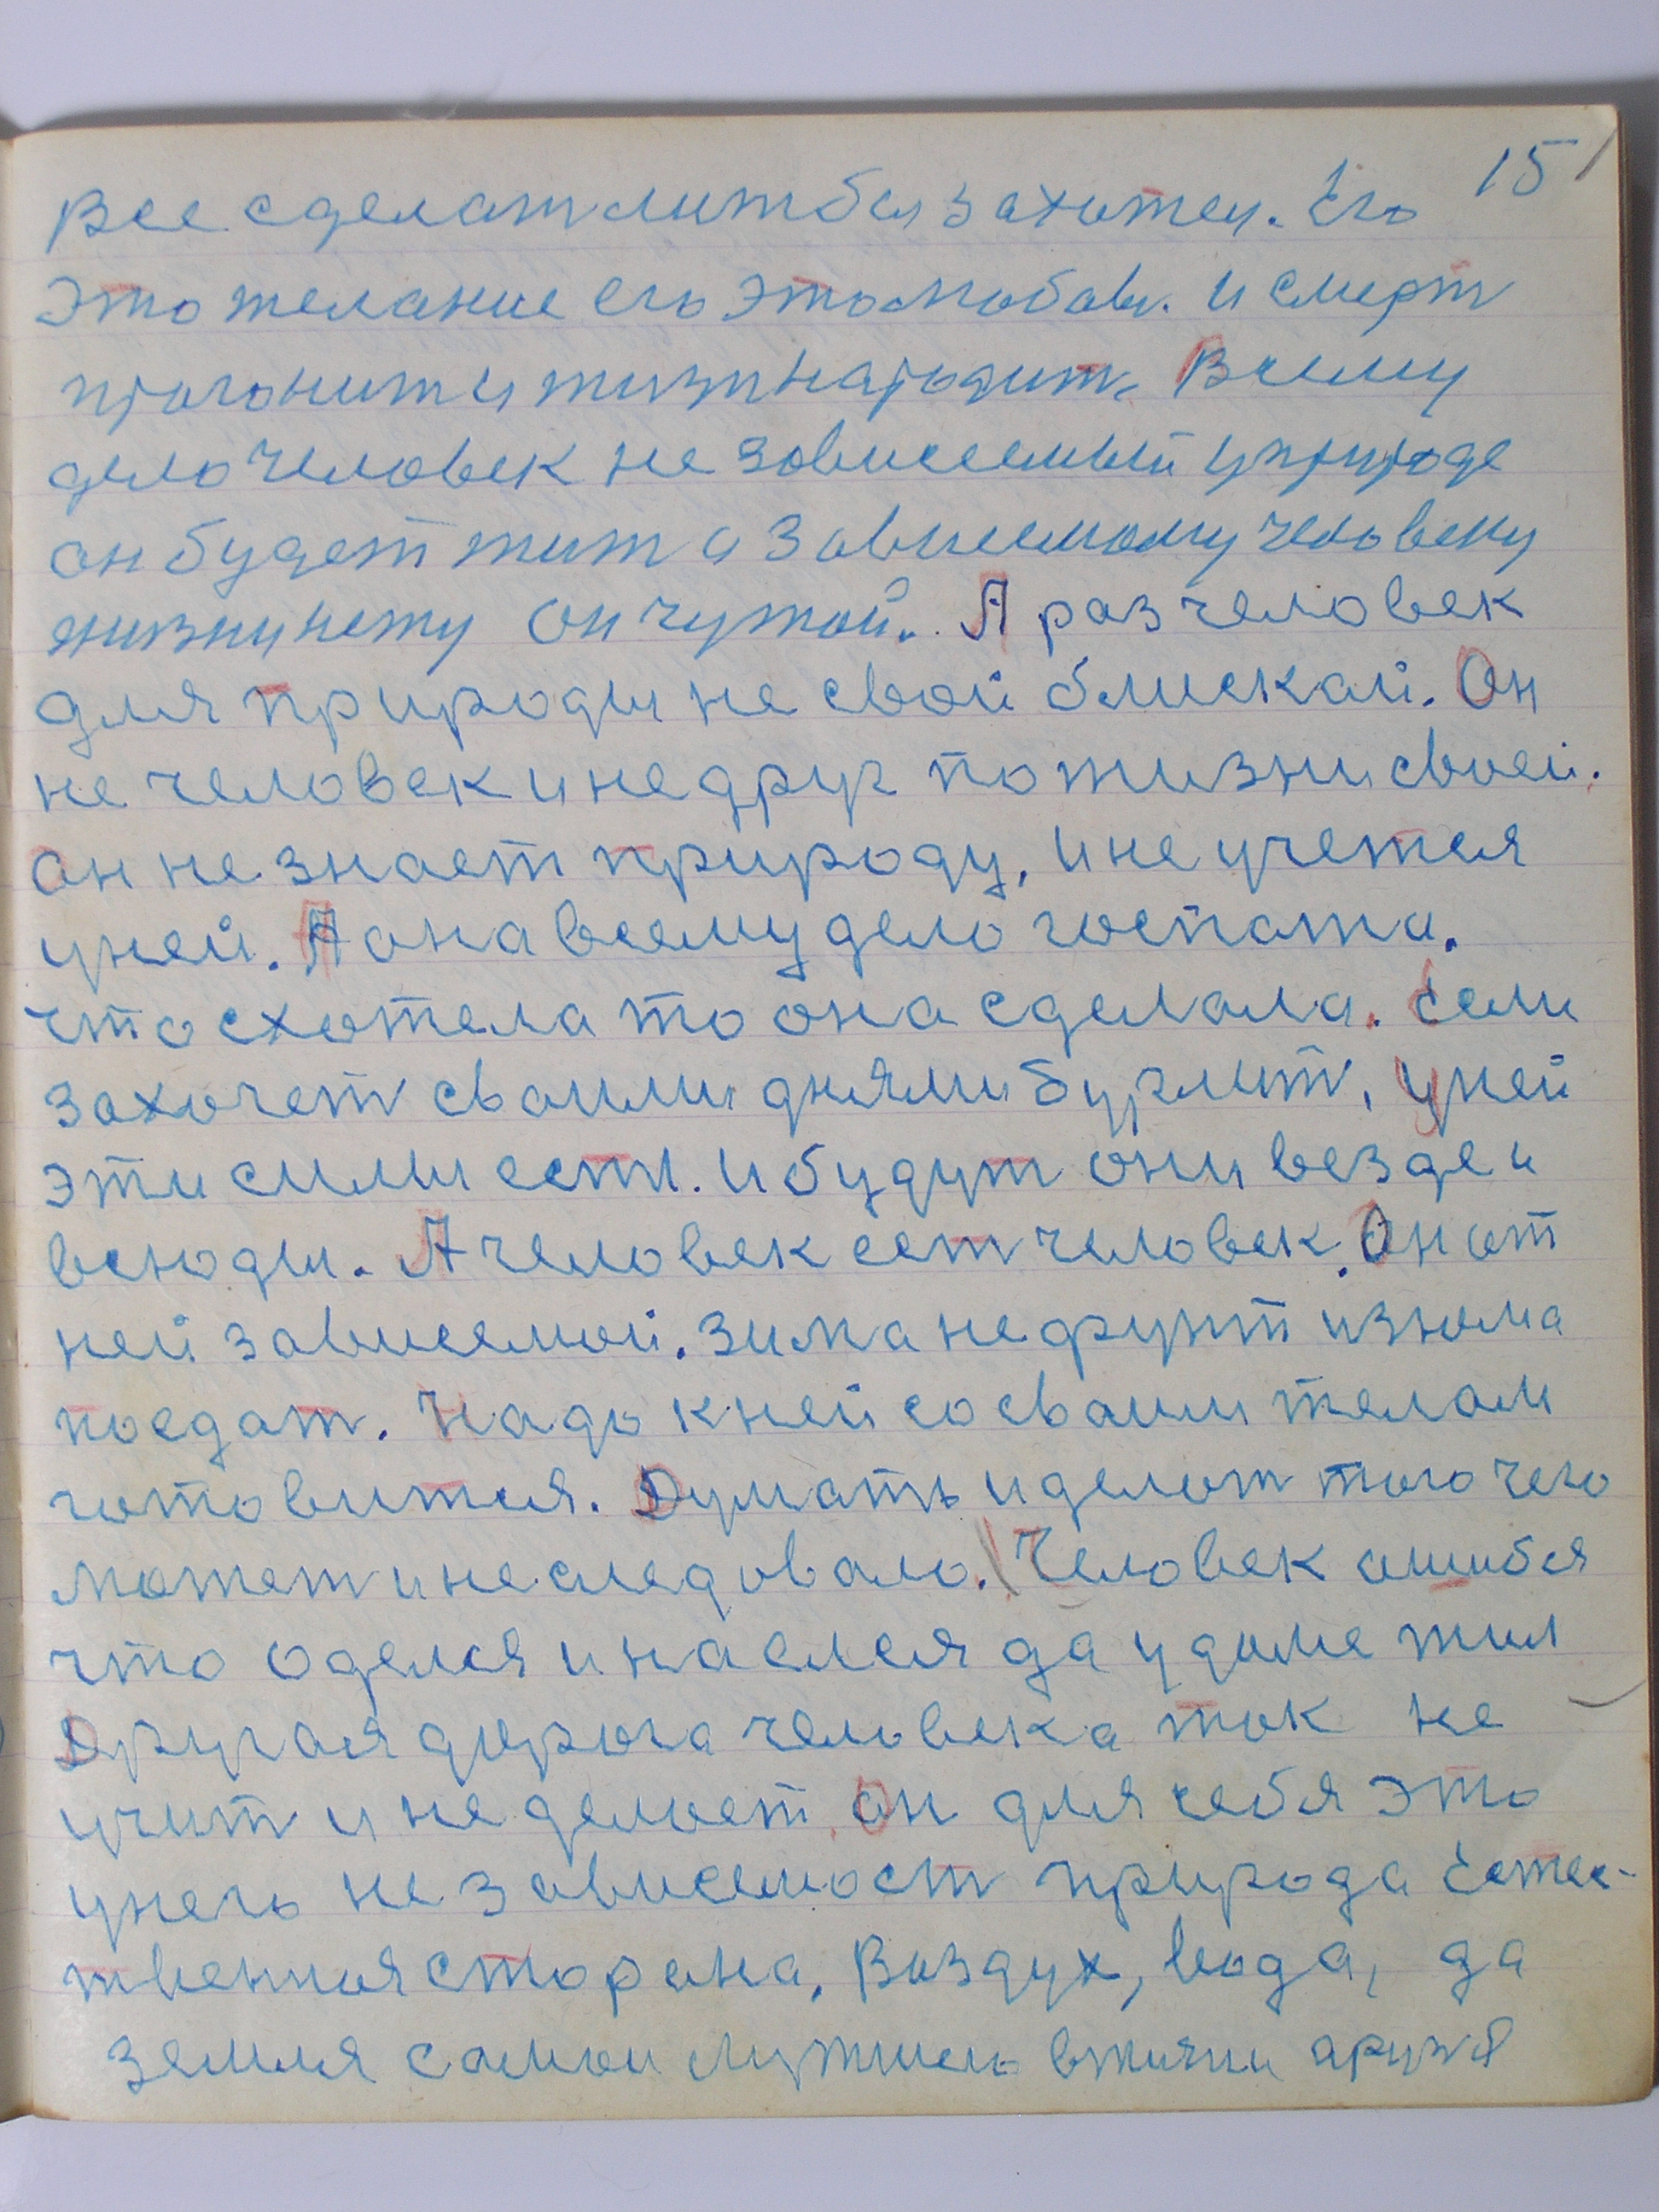 15
Все сделат лит бы захотел. Его
это желание его это любов. и смерт
прогонит и жизн народит. Всему
дело человек не зовисемый у природе
он будет жит а зовисемому человеку
жизни нету он чужой. А раз человек
для природы не свой блиской. Он
не человек и не друг по жизни своей.
он не знает природу, и не учетея
уней. А она всему дело госпожа.
что схотела то она сделала. Если
захочет своими днями бурлит, уней
эти силы есть. и будут они везде и
всюды. А человек сет человек. Он от
ней зависемой. Зима не фунт изюма
поедат. Надо к ней со своим телом
готовится. Думать и делат того чего
может и не следовало. Человек ошибся
что оделся и наелся да у доме жил
Другая дорога человека так не
учит и не делает. он для себя это
унего не зависемост природа Естес-
твенная сторона, Воздух, вода, да
земля самои лутшего в жизни друзя